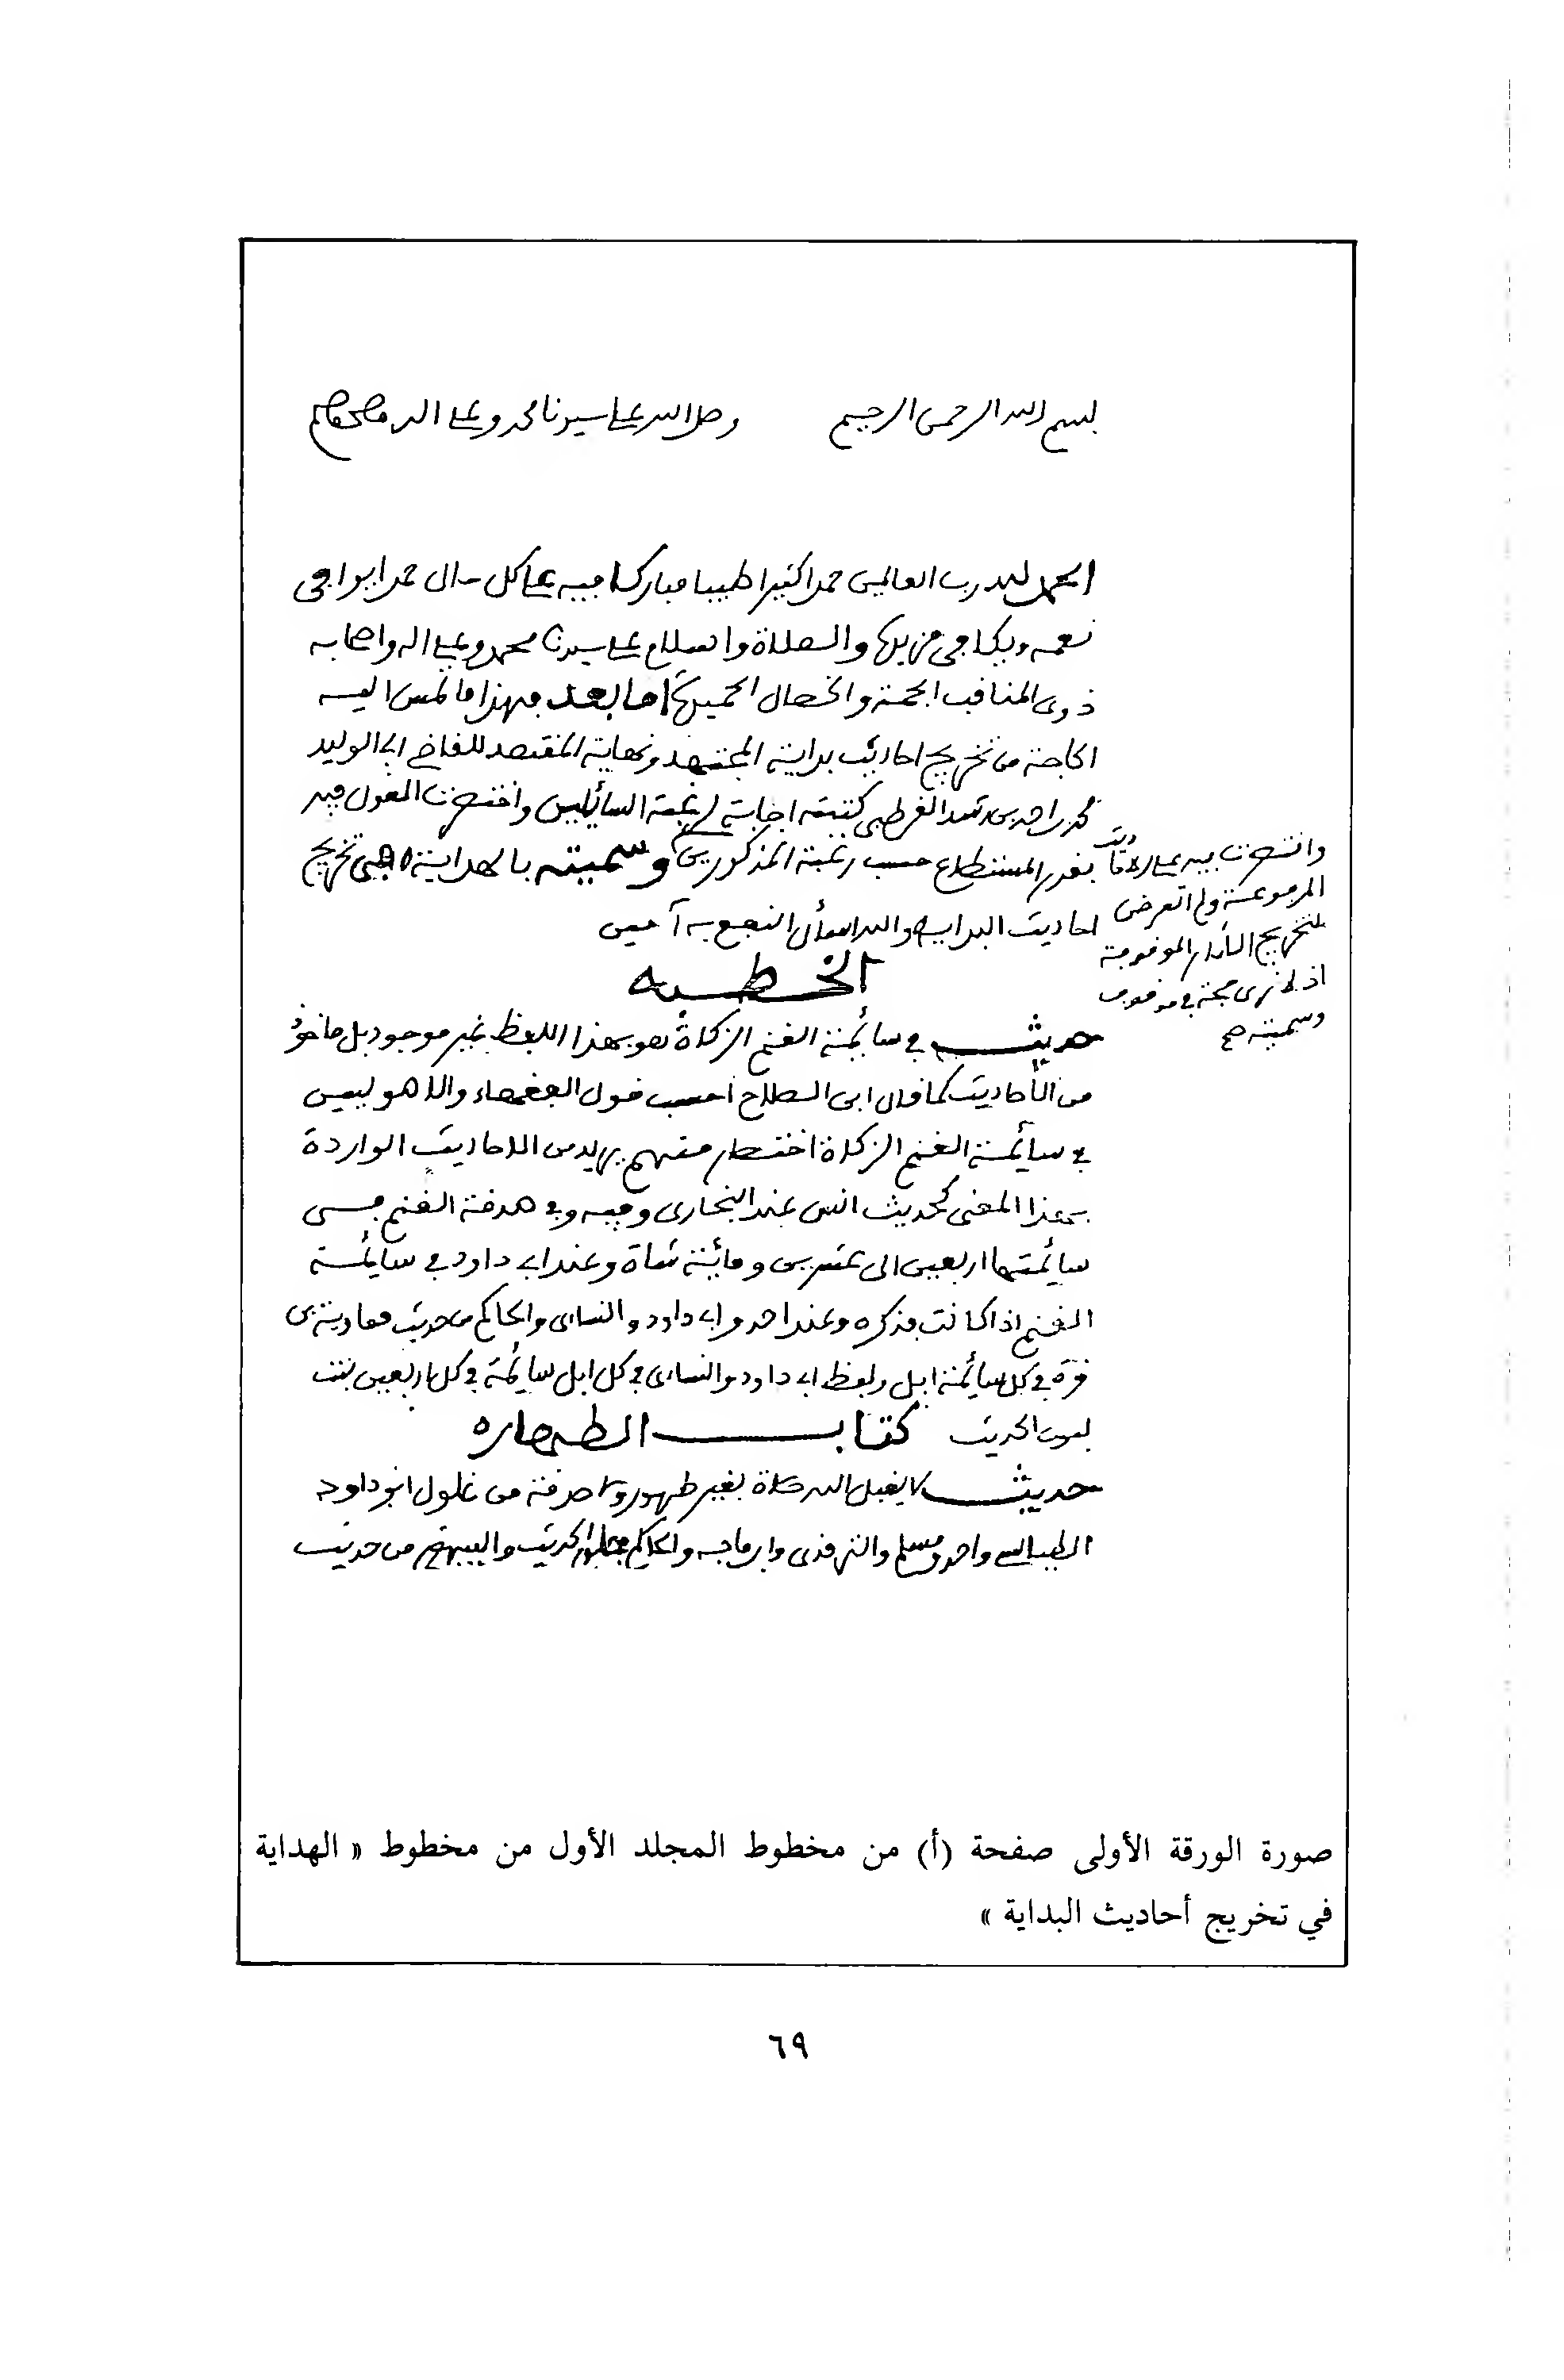 بسم الله الرحمن الرحيم وصلى الله على سيدنا محمد وعلى اله وصحبه وسلم
الحمد لله رب العالمين حمدا كثيرا طيبا مباركا فيه على كل حال حمدا يوافي
نعمه ويكافئ مزيده والصلاة والسلام على سيدنا محمد وعلى اله واصحابه
ذوي المناقب الجمة والخصال الحميدة أما بعد فهذا ما تمس اليه
الحاجة من تخريج احاديث بداية المجتهد ونهاية المقتصد للقاضي ابي الوليد
محمد بن احمد بن رشد القرطبي كتبته اجابة لرغبة السائلين واختصرت القول فيه
بقدر المستطاع حسب رغبة المذكورين وسميته بالهداية في تخريج
احاديث البداية والله اسأل النفع به آمين
واقتصرت فيه على الاحاديث
المرفوعة ولم اتعرض
لتخريج الآثار الموقوفة
اذ لا نرى حجة في موقوف
وسميته صح
الخطبه
حديث في سائمة الغنم الزكاة هو بهذا اللفظ غير موجود بل مأخوذ
من الأحاديث كما قال ابن الصلاح احسب قول الفقهاء والا هو ليس
في سائمة الغنم الزكاة اختصار منهم يريد من الاحاديث الواردة
بهذا المعنى كحديث انس عند البخاري وفيه وفي صدقة الغنم في
سائمتها اربعين الى عشرين ومائة شاة وعند ابي داود في سائمة
الغنم اذا كانت فذكره وعند احمد وابي داود والنسائي والحاكم من حديث معاوية بن
قرة في كل سائمة ابل ولفظ ابي داود والنسائي في كل ابل سائمة في كل اربعين بنت
لبون الحديث كتاب الطهاره
حديث لا يقبل الله صلاة بغير طهور ولا صدقة من غلول ابو داود
الطيالسي واحمد ومسلم والترمذي وابن ماجه والحاكم الحديث والبيهقي من حديث
صورة الورقة الأولى صفحة (أ) من مخطوط المجلد الأول من مخطوط « الهداية
في تخريج أحاديث البداية »
٦٩